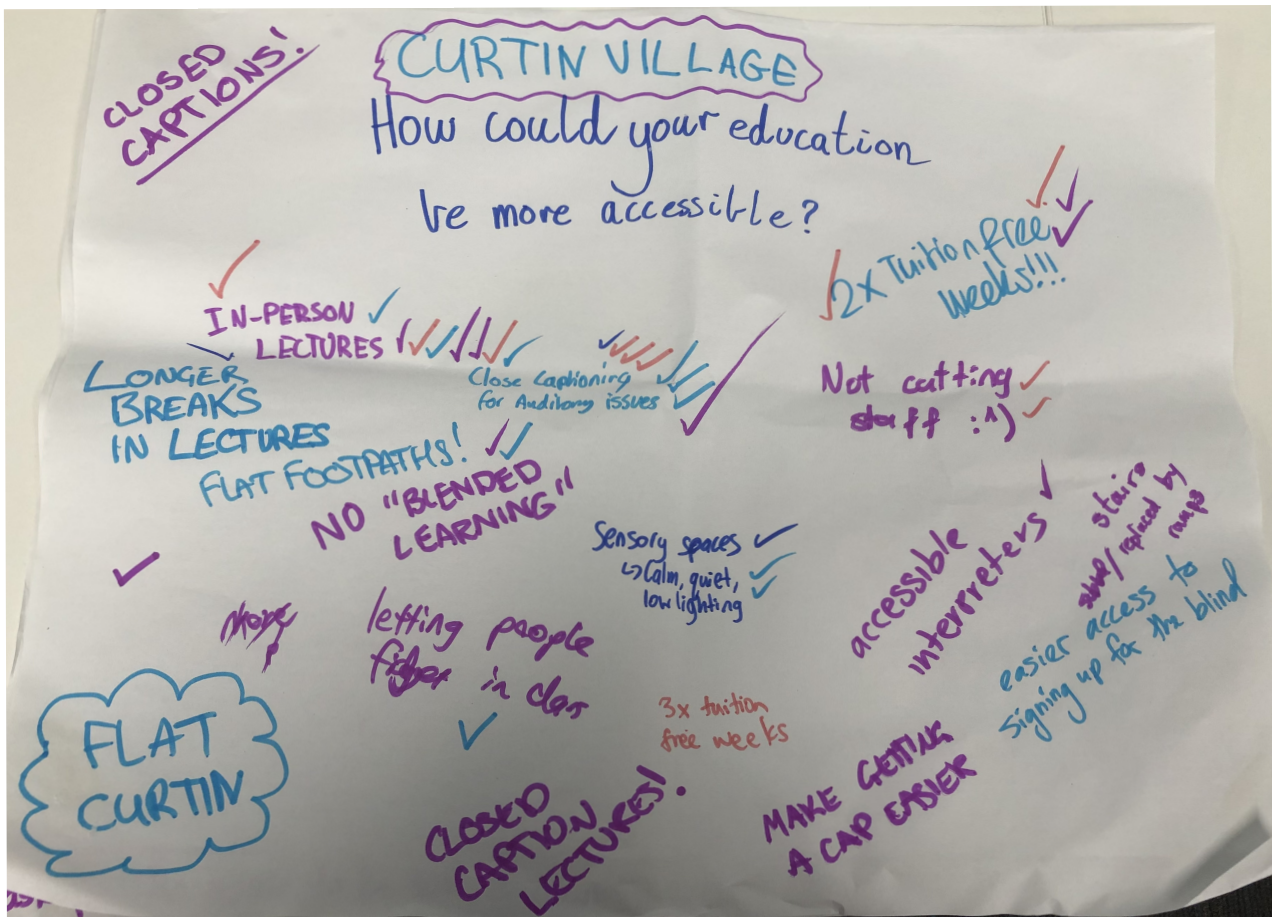 CLOSED
CAPTIONS!
CURTIN VILLAGE
How could your education
be more accessible?
2x Tuition free
weeks!!!
IN-PERSON
LECTURES
LONGER
BREAKS
IN LECTURES
Close Captioning
for Auditory issues
Not cutting
staff :')
FLAT FOOTPATHS!
NO "BLENDED
LEARNING"
Sensory spaces
↳ Calm, quiet,
low lighting
accessible
interpreters
stairs
replaced by
ramps
easier access to
signing up for the blind
letting people
in class
3x tuition
free weeks
FLAT
CURTIN
CLOSED
CAPTION
LECTURES!
MAKE GETTING
A CAP EASIER